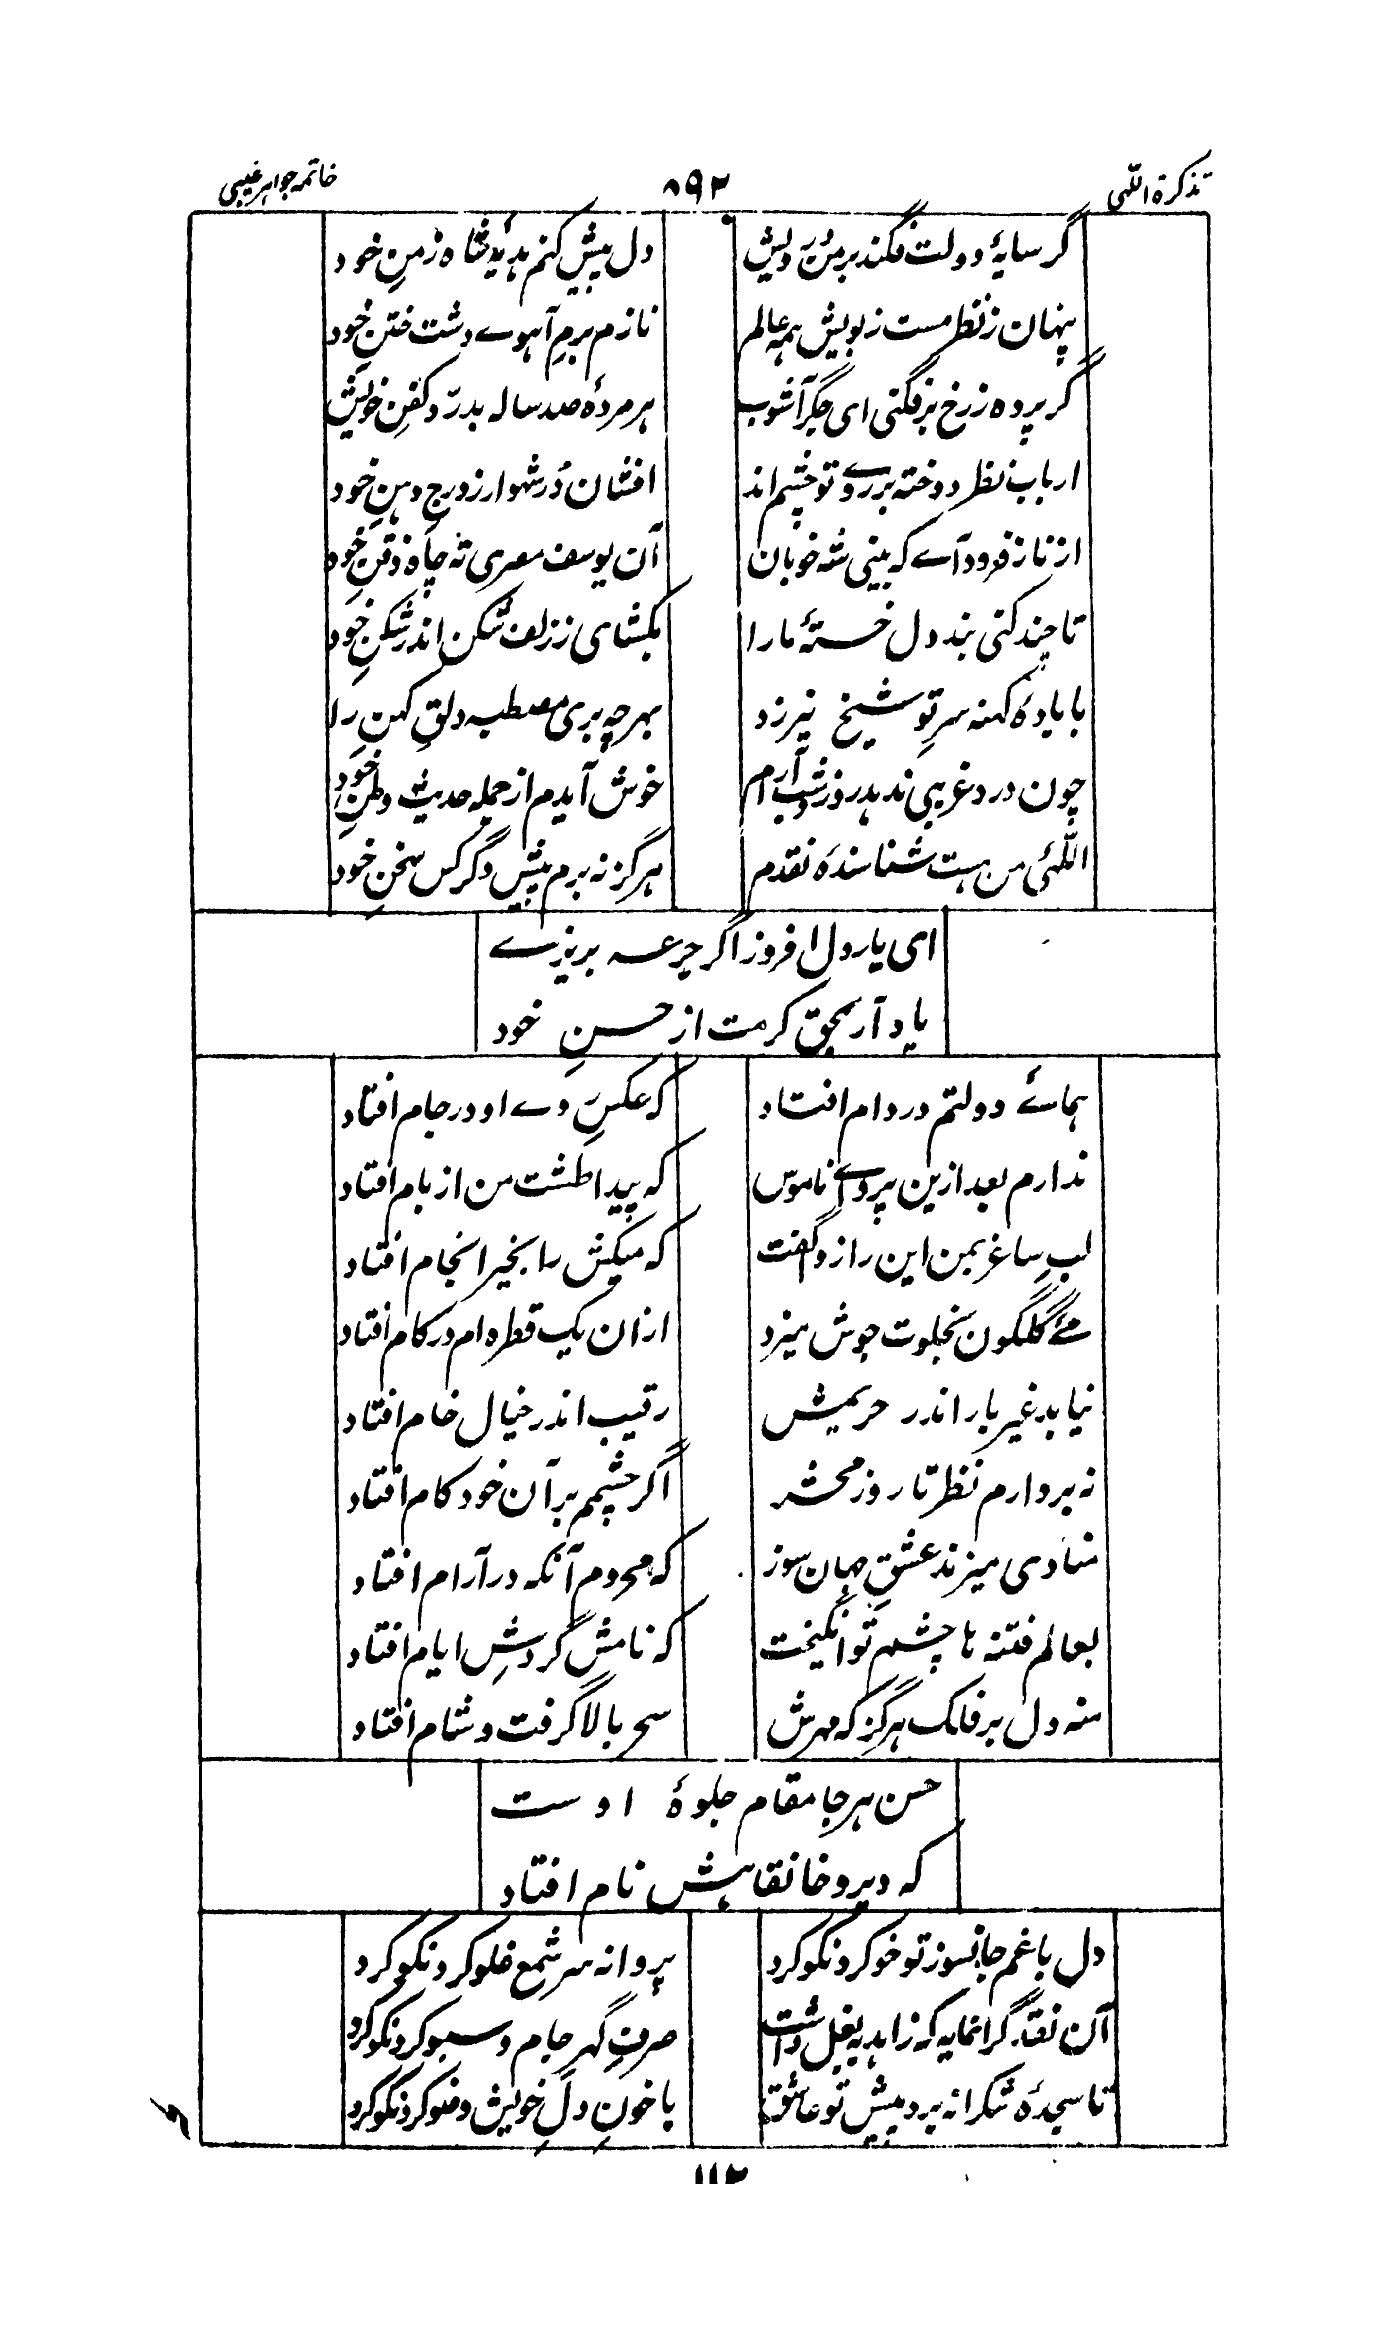 تذکرة اللّٰهی
۸۹۲
خاتمه جواهر غیبی
گر سایهٔ دولت فگند بر من درویش
دل پیش کنم هدیهٔ شاه زمنِ خود
پنهان ز نظر مست ز بویش همه عالم
نازم برمِ آهوے دشت ختنِ خود
گر پرده ز رخ برفگنی ای جگر آشوب
هر مردهٔ صد ساله بدرّد کفنِ خویش
ارباب نظر دوخته بر روے تو چشم اند
افشان دُر شهوار ز درجِ دهنِ خود
از ناز فرود آے که بینی شه خوبان
آن یوسف مصری ته چاهِ ذقنِ خود
تا چند کنی بند دل خستهٔ ما را
بکشای ز زلف شکن اندر شکنِ خود
با بادهٔ کهنه سرِ تو شیخ نیرزد
بهر چه بری مصطبه دلقِ کهنِ را
چون درد غریبی ندهد روز و شب آرام
خوش آیدم از جمله حدیث وطنِ خود
اللّٰهیٔ من هست شناسندهٔ نقدم
هرگز نه برم پیش دگر کس سخنِ خود
ای یار دل افروز اگر جرعه بریزے
یاد آر بحق کرمت از حسنِ خود
هماۓ دولتم در دام افتاد
که عکسِ روے او در جام افتاد
ندارم بعد ازین پرواے ناموس
که پیدا طشت من از بام افتاد
لبِ ساغر بمن این راز وا گفت
که میکش را بخیر انجام افتاد
مۓ گلگون بخلوت جوش میزد
ازان یک قطره ام در کام افتاد
نیابد غیر بار اندر حریمش
رقیب اندر خیال خام افتاد
نه بردارم نظر تا روز محشر
اگر چشمم بر آن خود کام افتاد
منادی میزند عشقِ جهان سوز
که محروم آنکه در آرام افتاد
بعالم فتنه ها چشم تو انگیخت
که نامش گردشِ ایام افتاد
منه دل بر فلک هرگز که مهرش
سحر بالا گرفت و شام افتاد
حسن هر جا مقام جلوهٔ اوست
که دیر و خانقاهش نام افتاد
دل با غم جانسوز تو خو کرد نکو کرد
پروانه سر شمع غلو کرد نکو کرد
آن نقد گرانمایه که زاهد به بغل داشت
صرفِ گهرِ جام و سبو کرد نکو کرد
تا سجدهٔ شکرانه برد پیش تو عاشق
با خونِ دلِ خویش وضو کرد نکو کرد
۱۱۲